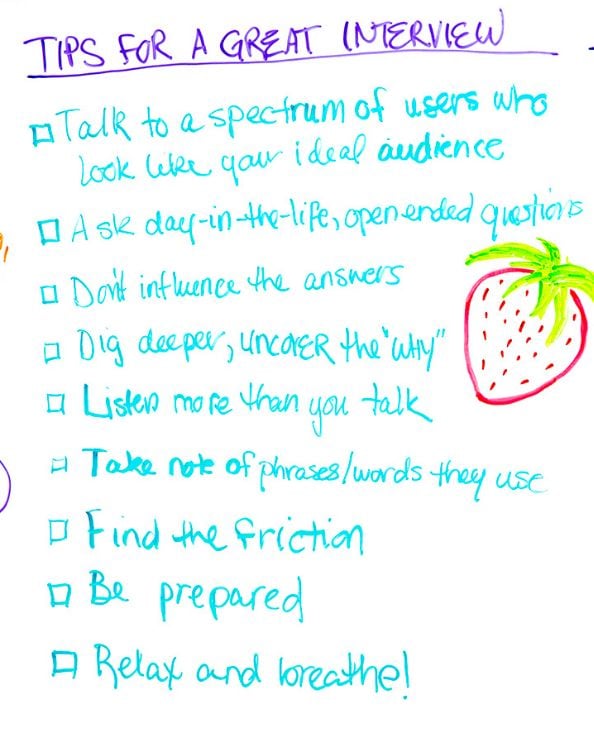 TIPS FOR A GREAT INTERVIEW
Talk to a spectrum of users who
look like your ideal audience
Ask day-in-the-life, open ended questions
Don't influence the answers
Dig deeper, UNCOVER the "Why"
Listen more than you talk
Take note of phrases/words they use
Find the friction
Be prepared
Relax and breathe!